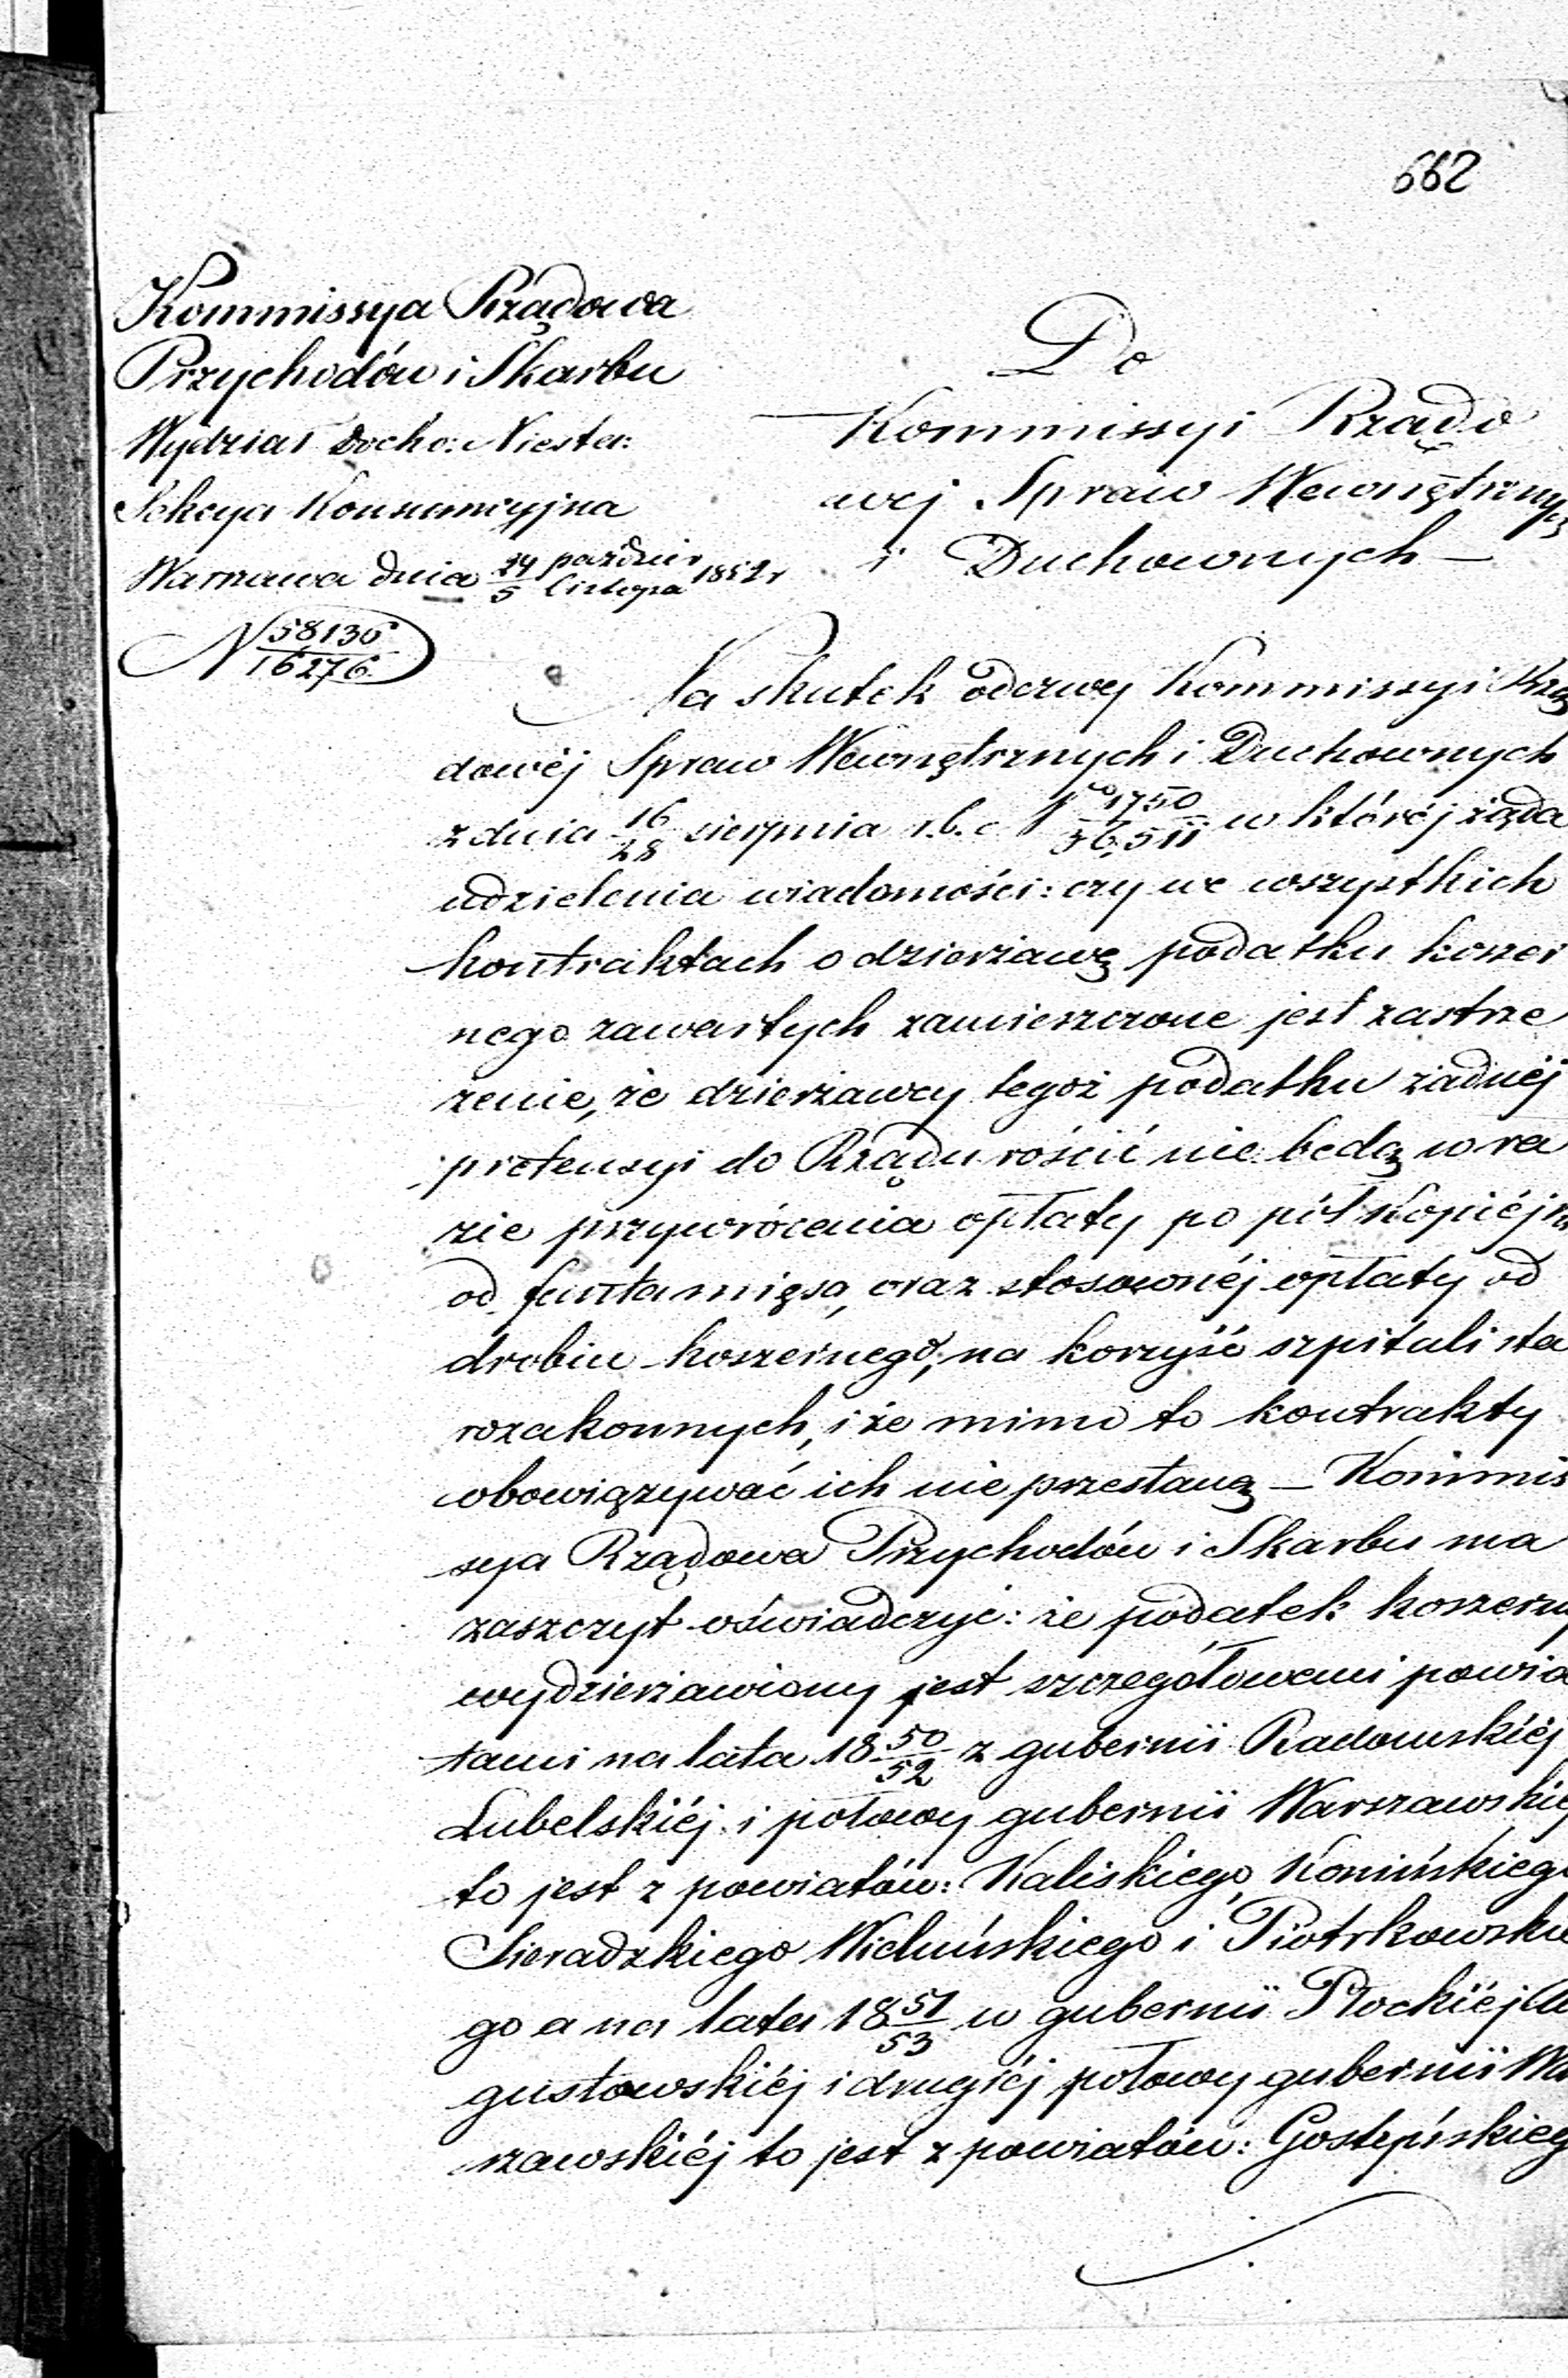 662
Kommissya Rządowa
Przychodów i Skarbu
Wydział Docho: Niesta:
Sekcya Konsumcyjna
Warszawa dnia 24/5 paździer/listopa 1852 r
N 58136/16276
Do
Kommissyi Rządo
wej Spraw Wewnętrznych
i Duchownych —
Na skutek odezwy Kommissyi Rzą
dowéj Spraw Wewnętrznych i Duchownych
z dnia 16/28 sierpnia r.b. No 1750/36,511 w któréj żąda
udzielenia wiadomości: czy we wszystkich
kontraktach o dzierżawę podatku koszer
nego zawartych zamieszczone jest zastrze
żenie, że dzierżawcy tegoż podatku żadnéj
pretensyi do Rządu rościć nie będą w ra
zie przywrócenia opłaty po pół kopiéjki
od funta mięsa, oraz stosownéj opłaty od
drobiu koszernego, na korzyść szpitali sta
rozakonnych, i że mimo to kontrakty
obowiązywać ich nie przestaną — Kommis
sya Rządowa Przychodów i Skarbu ma
zaszczyt oświadczyć: że podatek koszerny
wydzierżawiony jest szczegółowemi powia
tami na lata 18 50/52 z gubernii Radomskiéj
Lubelskiéj i połowy gubernii Warszawskiéj
to jest z powiatów: Kaliskiego, Konińskiego
Sieradzkiego Wieluńskiego i Piotrkowskie
go a na lata 18 51/53 w gubernii Płockiéj Au
gustowskiéj i drugiéj połowy gubernii War
szawskiéj to jest z powiatów: Gostyńskiego